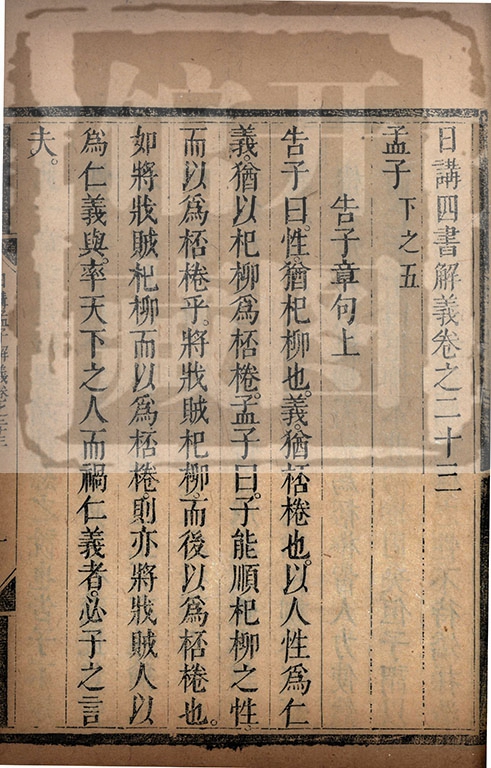 日講四書解義卷之二十三
孟子下之五
告子章句上
告子曰。性。猶杞柳也。義。猶桮棬也。以人性爲仁
義。猶以杞柳爲桮棬。孟子曰。子能順杞柳之性。
而以爲桮棬乎。將戕賊杞柳。而後以爲桮棬也。
如將戕賊杞柳而以爲桮棬。則亦將戕賊人以
爲仁義與。率天下之人而禍仁義者。必子之言
夫。